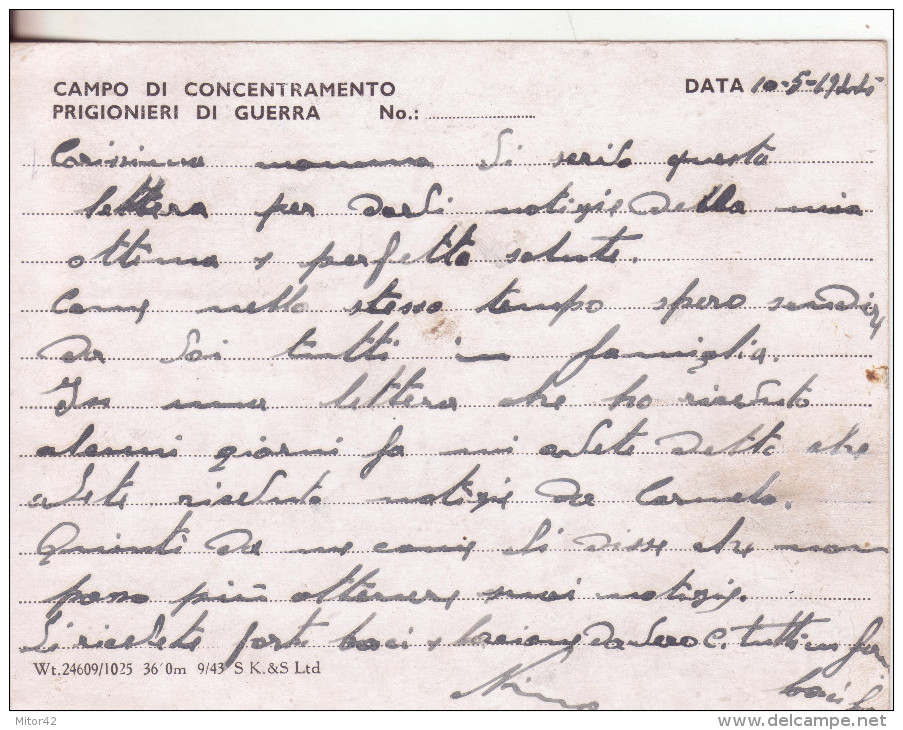 CAMPO DI CONCENTRAMENTO
PRIGIONIERI DI GUERRA No.:
DATA 10-5-1944
Carissima mamma ti scrivo questa
lettera per darti notizie della mia
ottima e perfetta salute.
Come nello stesso tempo spero
da voi tutti in famiglia.
In una lettera che ho ricevuto
alcuni giorni fa mi avete detto che
avete ricevuto notizie da Carmelo.
Quindi da me come ti disse che non
posso più ottenere suoi notizie.
Ti ricevete forte baci e tutti
Wt.24609/1025 36 0m 9/43 S K.&S Ltd
Nino
baci
Mitor42
delcampe.net